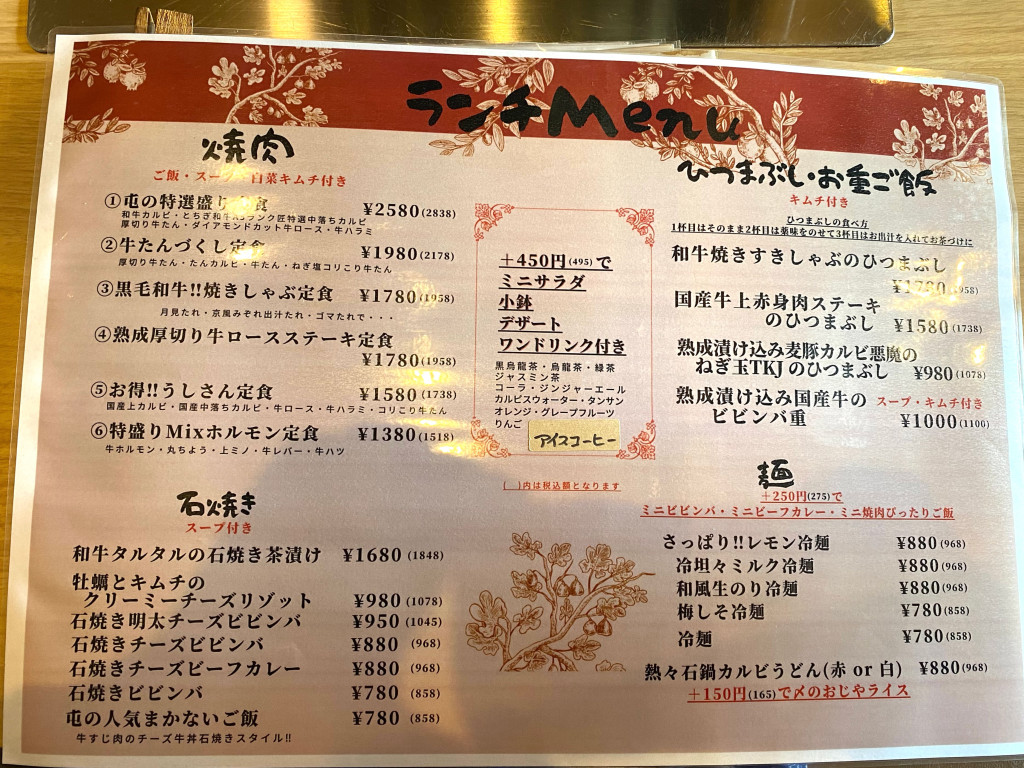 ランチMenu
焼肉
ご飯・スープ・白菜キムチ付き
①屯の特選盛り定食 ¥2580(2838)
和牛カルビ・とちぎ和牛A5ランク匠特選中落ちカルビ
厚切り牛たん・ダイアモンドカット牛ロース・牛ハラミ
②牛たんづくし定食 ¥1980(2178)
厚切り牛たん・たんカルビ・牛たん・ねぎ塩コリこり牛たん
③黒毛和牛!!焼きしゃぶ定食 ¥1780(1958)
月見たれ・京風みぞれ出汁たれ・ゴマたれで・・・
④熟成厚切り牛ロースステーキ定食
¥1780(1958)
⑤お得!!うしさん定食 ¥1580(1738)
国産上カルビ・国産中落ちカルビ・牛ロース・牛ハラミ・コリこり牛たん
⑥特盛りMixホルモン定食 ¥1380(1518)
牛ホルモン・丸ちょう・上ミノ・牛レバー・牛ハツ
石焼き
スープ付き
和牛タルタルの石焼き茶漬け ¥1680(1848)
牡蠣とキムチの
クリーミーチーズリゾット ¥980(1078)
石焼き明太チーズビビンバ ¥950(1045)
石焼きチーズビビンバ ¥880(968)
石焼きチーズビーフカレー ¥880(968)
石焼きビビンバ ¥780(858)
屯の人気まかないご飯 ¥780(858)
牛すじ肉のチーズ牛丼石焼きスタイル!!
+450円(495)で
ミニサラダ
小鉢
デザート
ワンドリンク付き
黒烏龍茶・烏龍茶・緑茶
ジャスミン茶
コーラ・ジンジャーエール
カルピスウォーター・タンサン
オレンジ・グレープフルーツ
りんご
アイスコーヒー
( )内は税込額となります
ひつまぶし・お重ご飯
キムチ付き
ひつまぶしの食べ方
1杯目はそのまま2杯目は薬味をのせて3杯目はお出汁を入れてお茶づけに
和牛焼きすきしゃぶのひつまぶし
¥1780(1958)
国産牛上赤身肉ステーキ
のひつまぶし ¥1580(1738)
熟成漬け込み麦豚カルビ悪魔の
ねぎ玉TKJのひつまぶし ¥980(1078)
熟成漬け込み国産牛の スープ・キムチ付き
ビビンバ重 ¥1000(1100)
麺
+250円(275)で
ミニビビンバ・ミニビーフカレー・ミニ焼肉ぴったりご飯
さっぱり!!レモン冷麺 ¥880(968)
冷坦々ミルク冷麺 ¥880(968)
和風生のり冷麺 ¥880(968)
梅しそ冷麺 ¥780(858)
冷麺 ¥780(858)
熱々石鍋カルビうどん(赤 or 白) ¥880(968)
+150円(165)で〆のおじやライス